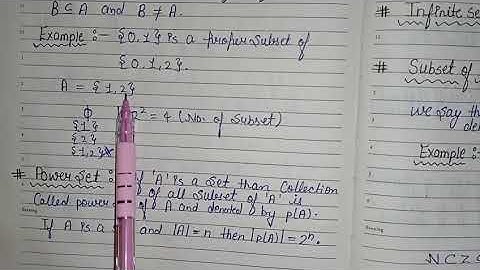 B ⊆ A and B ≠ A.
Example :- {0,1} is a proper subset of
{0,1,2}.
A = {1,2}
ϕ
2² = 4 (No. of Subset)
{1}
{2}
{1,2}
# Power Set : If 'A' is a set than collection
of all subset of 'A' is
Called power of A and denoted by p(A).
If A is a and |A| = n then |p(A)| = 2ⁿ.
# Infinite Se
# Subset of
we say th
den
Example :-
N ⊂ Z ⊂